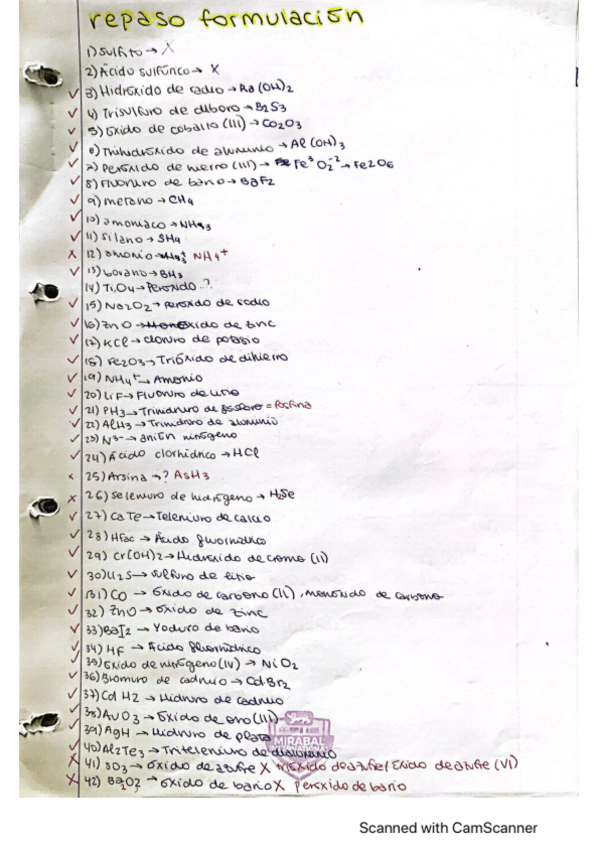 repaso formulación
1) Sulfito → X
2) Ácido sulfúrico → X
✓ 3) Hidróxido de radio → Ra(OH)2
✓ 4) Trisulfuro de diboro → B2S3
✓ 5) Óxido de cobalto (III) → Co2O3
✓ 6) Trihidróxido de aluminio → Al(OH)3
✓ 7) Peróxido de hierro (III) → Fe3 O2-2 → Fe2O6
✓ 8) Fluoruro de bario → BaF2
✓ 9) metano → CH4
✓ 10) amoniaco → NH3
✓ 11) Silano → SH4
X 12) amonio → NH4+
✓ 13) borano → BH3
14) TiO4 → Peróxido ..?
✓ 15) Na2O2 → peróxido de sodio
✓ 16) ZnO → Monóxido de zinc
✓ 17) KCl → cloruro de potasio
✓ 18) Fe2O3 → Trióxido de dihierro
✓ 19) NH4+ → Amonio
✓ 20) LiF → Fluoruro de litio
✓ 21) PH3 → Trihidruro de fósforo = fosfina
✓ 22) AlH3 → Trihidruro de aluminio
✓ 23) N3- → anión nitrógeno
✓ 24) Ácido clorhídrico → HCl
x 25) Arsina → ? AsH3
X 26) Seleniuro de hidrógeno → H2Se
✓ 27) CaTe → Teleniuro de calcio
✓ 28) Hfac → Ácido fluorhídrico
✓ 29) Cr(OH)2 → Hidróxido de cromo (II)
✓ 30) Li2S → sulfuro de litio
✓ 31) CO → Óxido de carbono (II), monóxido de carbono
✓ 32) ZnO → óxido de zinc
✓ 33) BaI2 → Yoduro de bario
✓ 34) HF → Ácido fluorhídrico
✓ 35) Óxido de nitrógeno (IV) → NiO2
✓ 36) Bromuro de cadmio → CdBr2
✓ 37) CdH2 → Hidruro de cadmio
✓ 38) AuO3 → Óxido de oro (III)
✓ 39) AgH → Hidruro de plata
✓ 40) Al2Te3 → Tritelenuro de dialuminio
X 41) SO3 → óxido de azufre X trióxido de azufre / óxido de azufre (VI)
X 42) Ba2O2 → óxido de bario X peróxido de bario
MIRABAL
INTERNATIONAL
Scanned with CamScanner